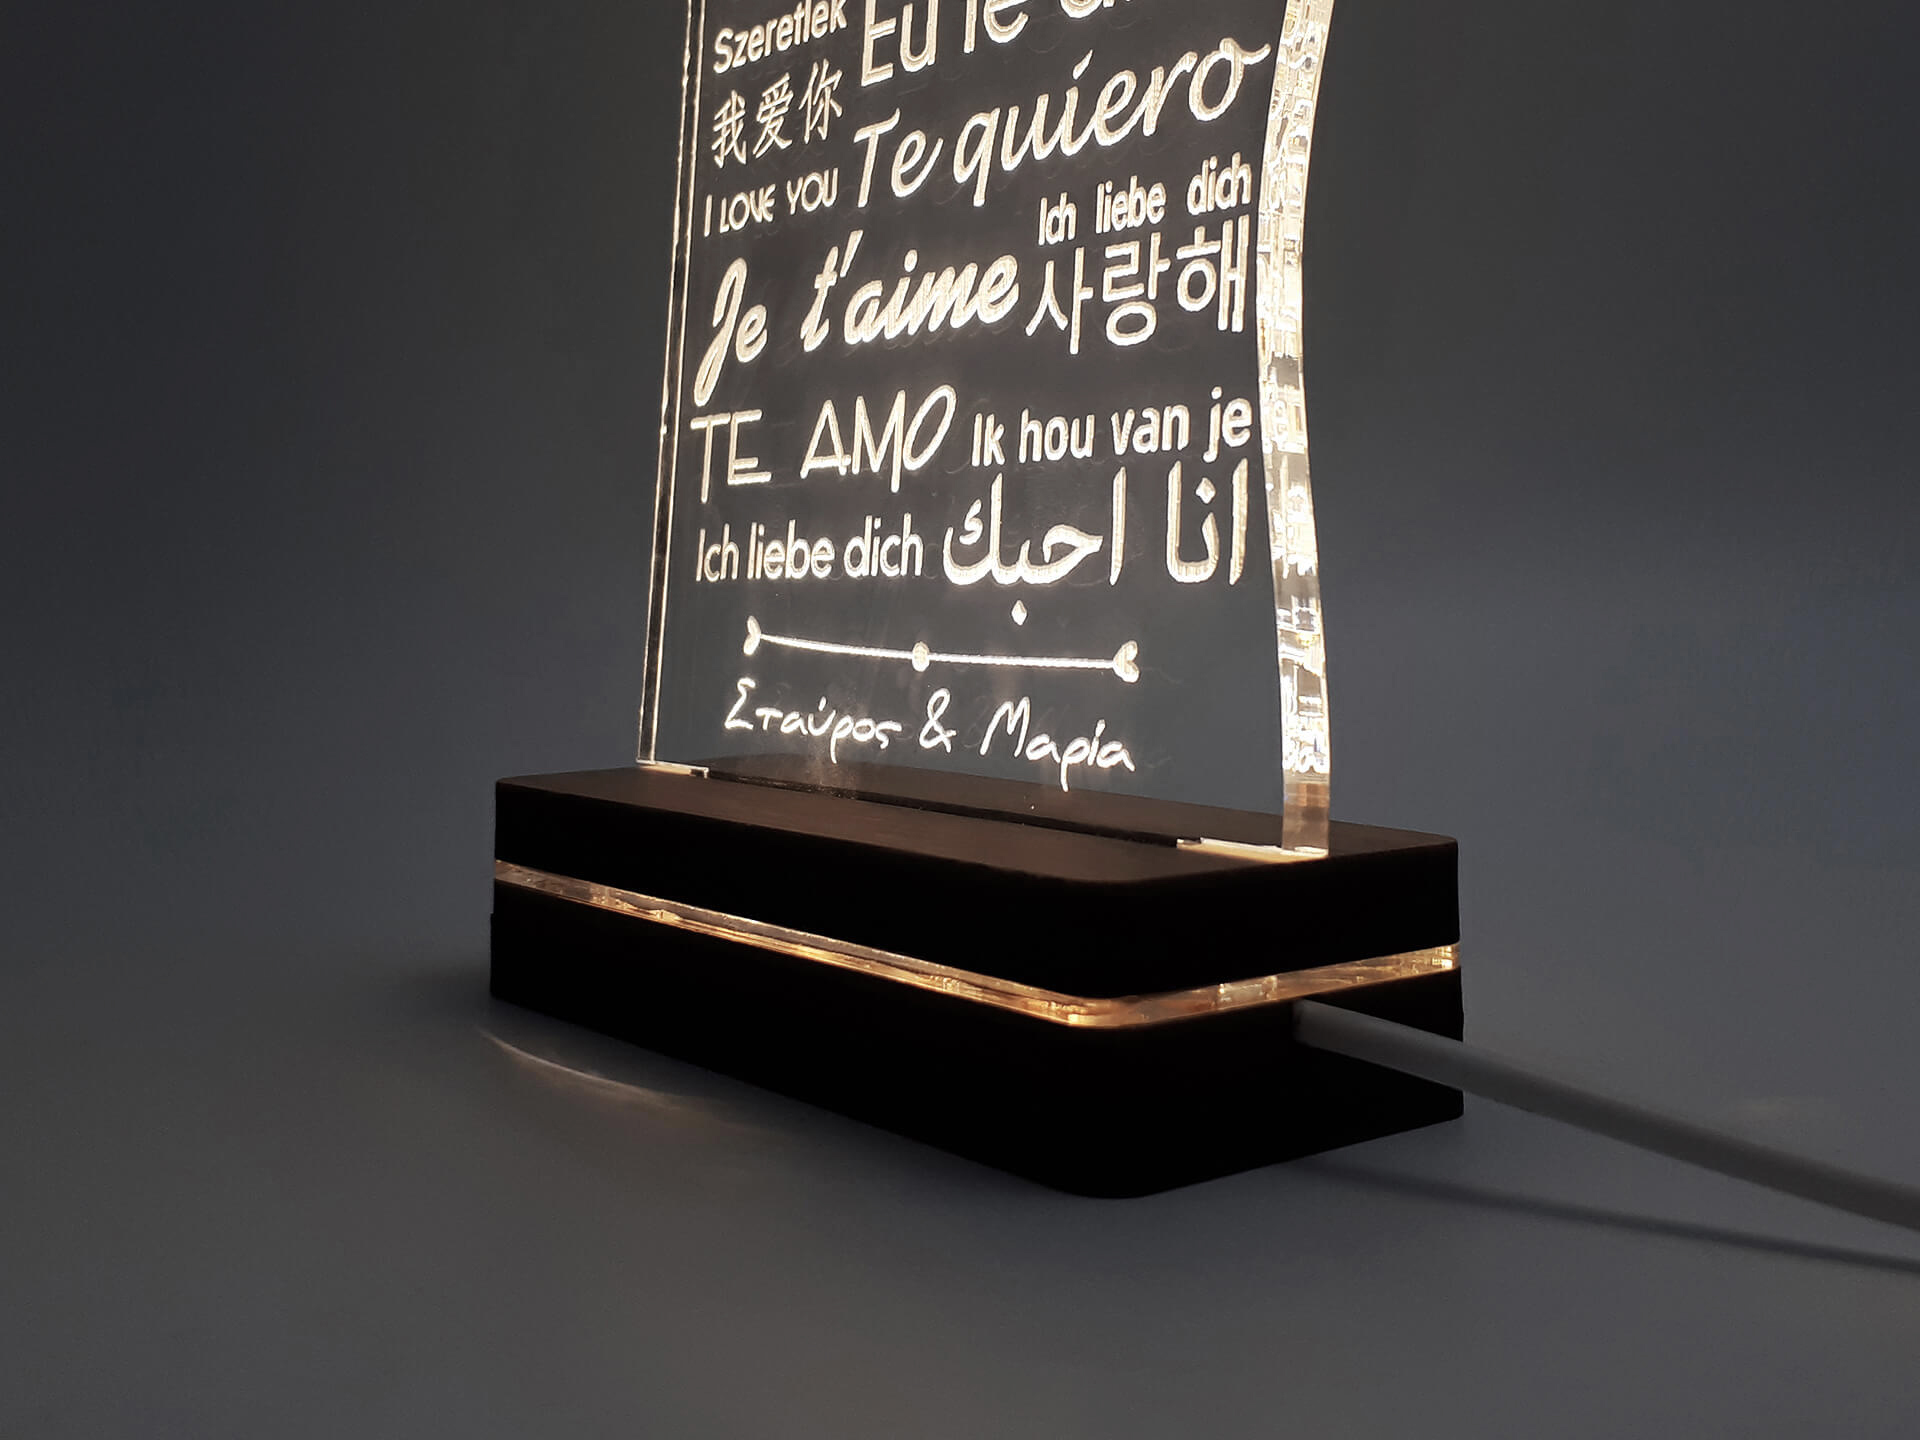 Szeretlek
Eu te
我爱你
Te quiero
I LOVE YOU
Ich liebe dich
Je t'aime
사랑해
TE AMO
Ik hou van je
Ich liebe dich
انا احبك
Σταύρος & Μαρία